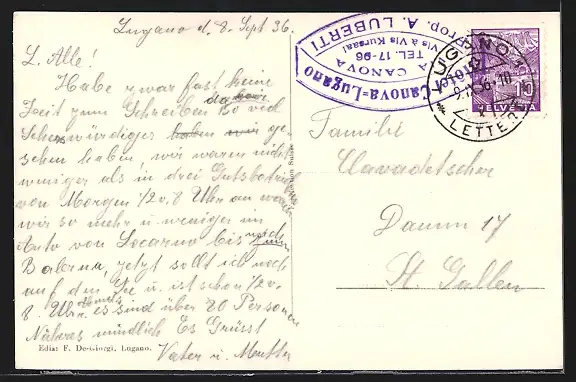 Lugano d. 8. Sept 36.
L. Alle!
Habe zwar fast keine
Zeit zum Schreiben da wir so viel
Sehenswürdiges ge-
sehen haben, wir waren nicht
weniger als in drei Gutsbetrieb
von Morgen 1/2 v. 8 Uhr an waren
wir so mehr u weniger im
Auto von Locarno bis
Balerna, jetzt sollt ich noch
auf den See u. ist schon 1/2 v.
8. Uhr abends es sind über 80 Personen
Näheres mündlich Es Grüsst
Vater u. Mutter
Ediz: F. De-Giorgi, Lugano.
Prop. A. LUBERTI
Vis à Vis Kursaal
TEL. 17-96
A CANOVA
Canova-Lugano
LUGANO
LETTERE
10
HELVETIA
Familie
Clavadetscher
Damm 17
St. Gallen